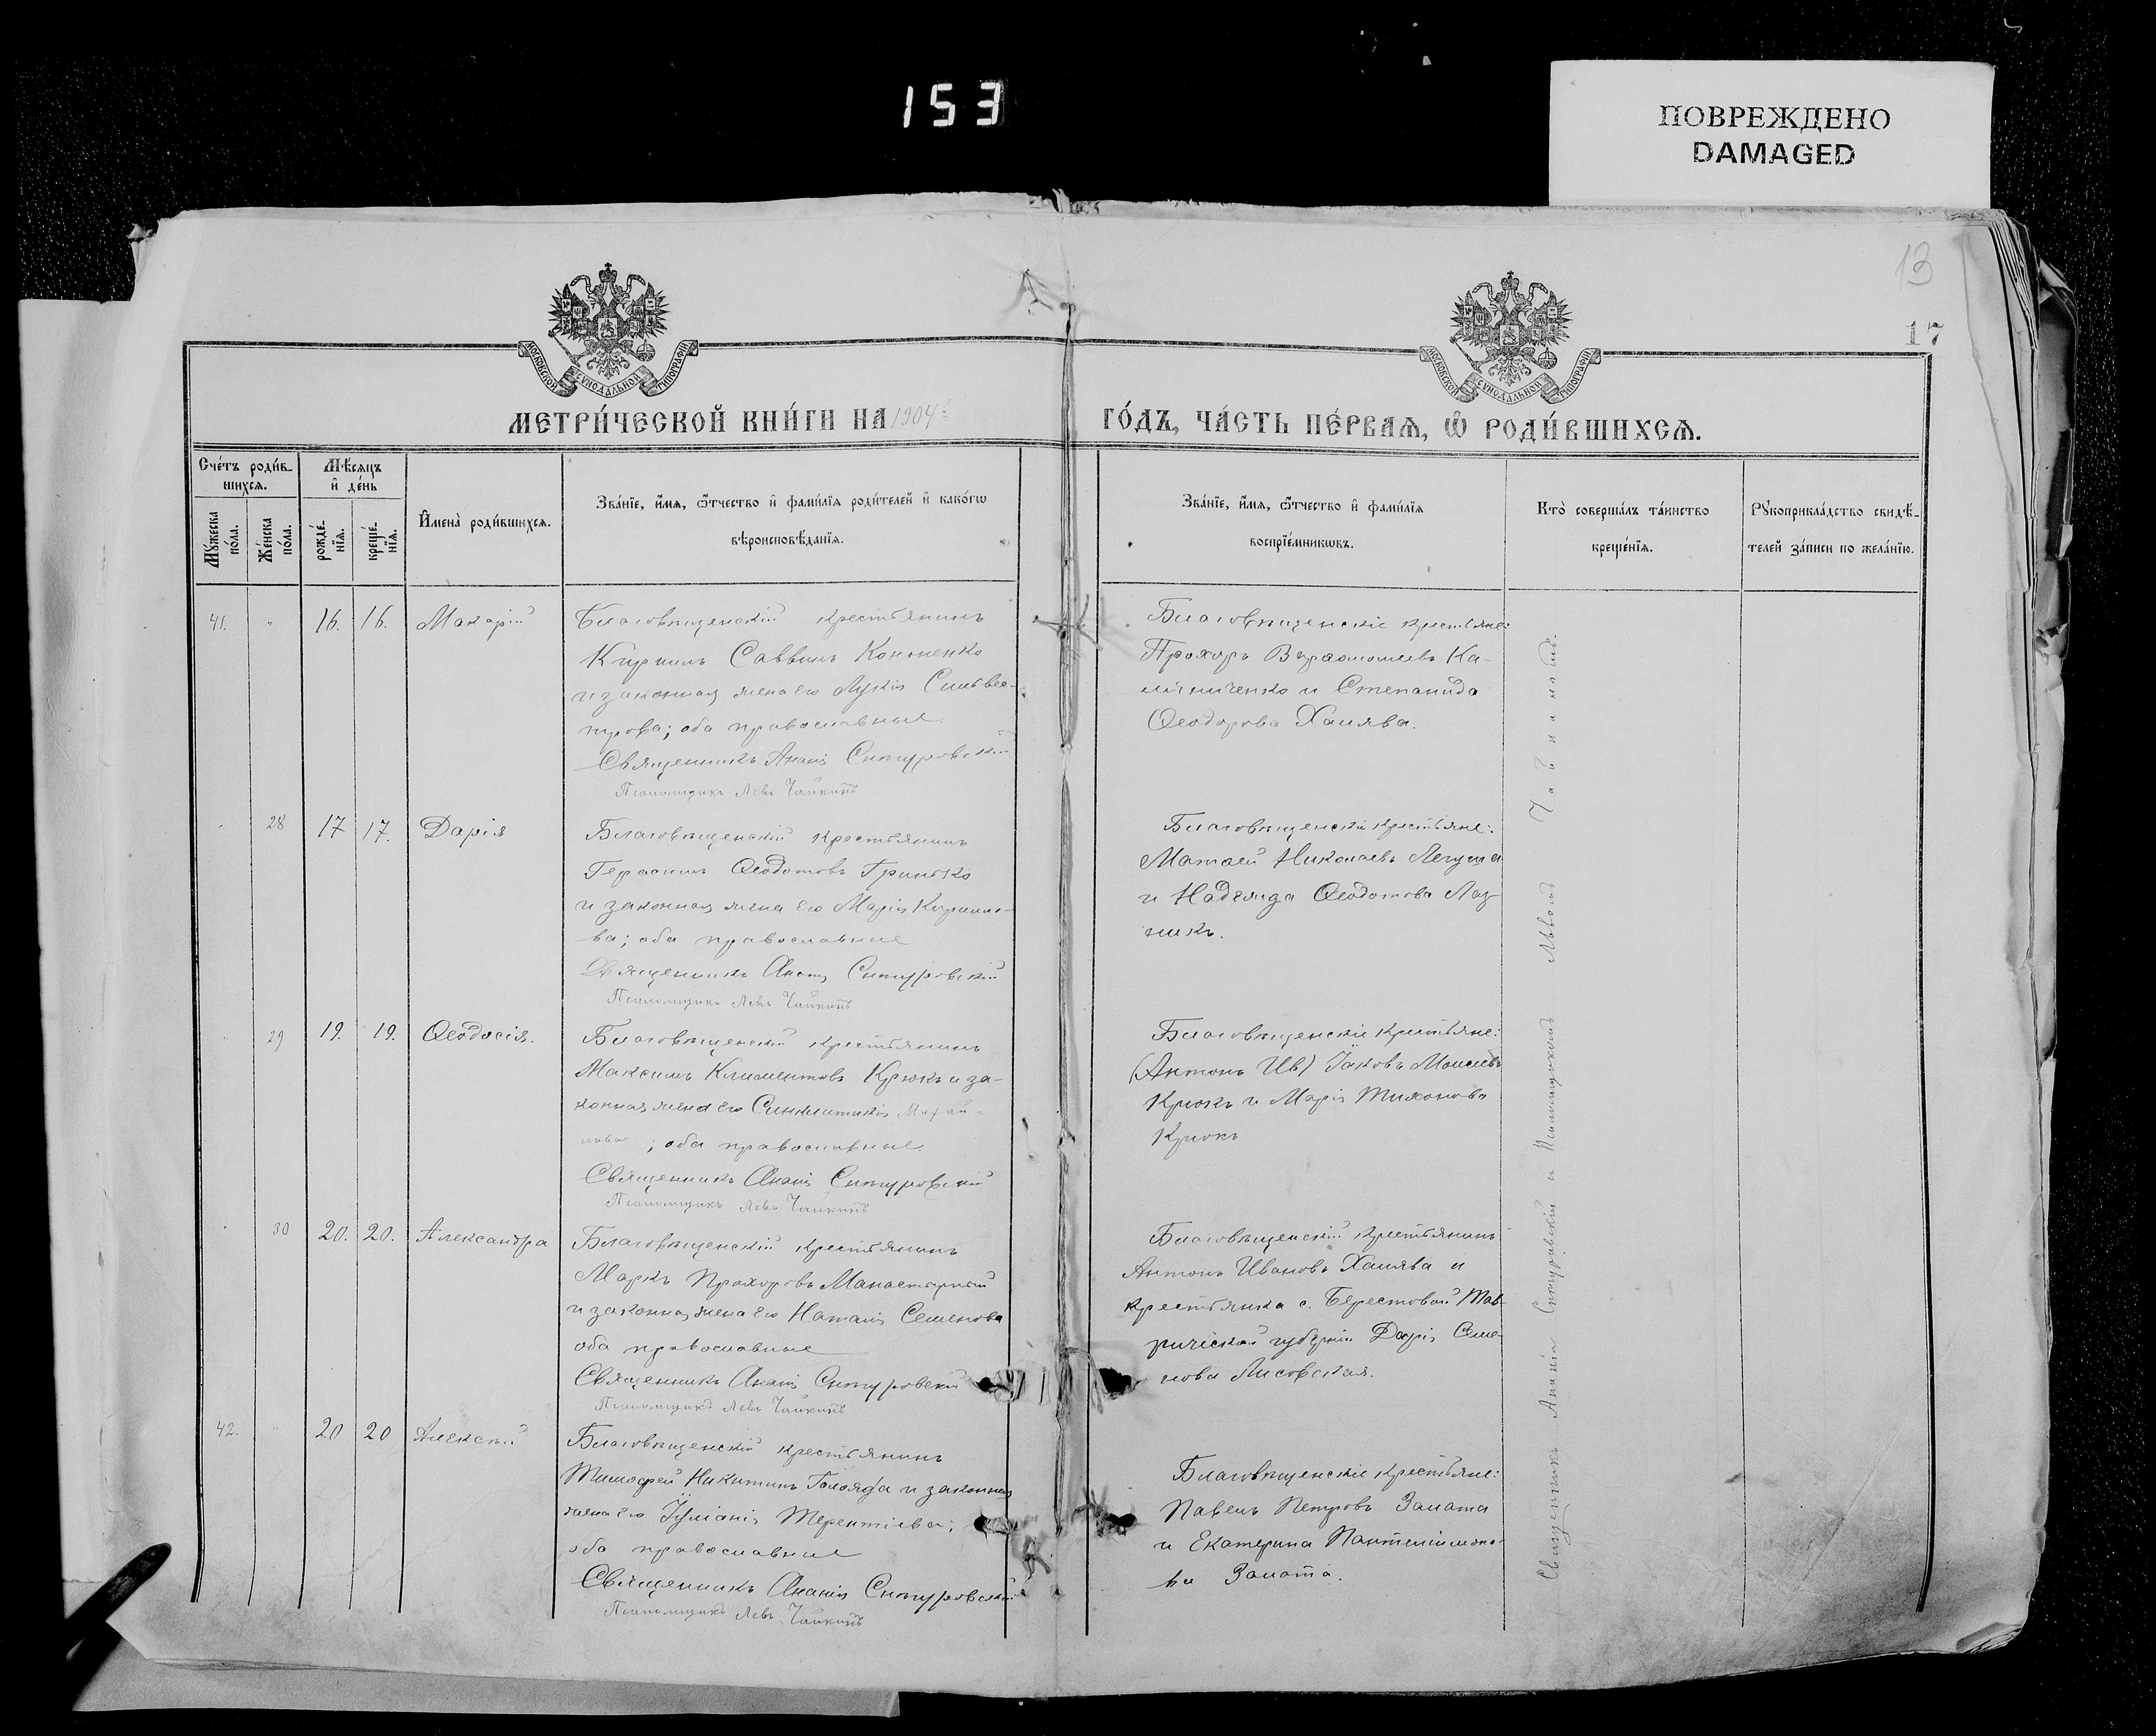 153
ПОВРЕЖДЕНО
DAMAGED
13
17
МОСКОВСКОЙ СУНОДАЛЬНОЙ ТИПОГРАФІИ
МОСКОВСКОЙ СУНОДАЛЬНОЙ ТИПОГРАФІИ
МЕТРИ́ЧЕСКОЙ КНИ́ГИ НА 1904
ГО́ДЪ, ЧА́СТЬ ПЕ́РВАѦ, Ѽ РОДИ́ВШИХСѦ.
Сче́тъ роди́в-
шихсѧ.
Мѣ́сяцъ
и҆ де́нь
Мꙋ́жеска
по́ла.
Же́нска
по́ла.
рожде́-
нїѧ.
креще́-
нїѧ.
И҆мена̀ роди́вшихсѧ.
Зва́нїе, и҆́мѧ, ѻ҆́тчество и҆ фами́лїѧ роди́телей и҆ како́гѡ
вѣроисповѣ́данїѧ.
Зва́нїе, и҆́мѧ, ѻ҆́тчество и҆ фами́лїѧ
воспрїе́мникѡвъ.
Кто̀ соверша́лъ та́инство
креще́нїѧ.
Рꙋкоприкла́дство свидѣ́-
телей за́писи по жела́нїю.
41. " 16. 16. Макарій
Благовѣщенскій крестьянинъ
Кириллъ Саввинъ Кононенко
и законная жена его Лукія Сильвес-
трова; оба православные
Священникъ Ананія Снѣгуровскій
Псаломщикъ Левъ Чайкинъ
Благовѣщенскіе крестьяне:
Прохоръ Варѳоломѣевъ Ка-
лѣниченко и Степанида
Ѳеодорова Халява.
28 17 17. Дарія
Благовѣщенскій крестьянинъ
Герасимъ Ѳеодотовъ Гринько
и законная жена его Марія Кирилло-
ва; оба православные
Священникъ Ананія Снѣгуровскій
Псаломщикъ Левъ Чайкинъ
Благовѣщенскіе крестьяне:
Матѳей Николаевъ
и Надежда Ѳеодотова Лаз-
никъ.
29 19. 19. Ѳеодосія.
Благовѣщенскій крестьянинъ
Максимъ Климентовъ Крюкъ и за-
конная жена его Синклитикія Михай-
лова; оба православные
Священникъ Ананія Снѣгуровскій
Псаломщикъ Левъ Чайкинъ
Благовѣщенскіе крестьяне:
(Антонъ Ив) Іаковъ Моисеевъ
Крюкъ и Марія Тихонова
Крюкъ
30 20. 20. Александра
Благовѣщенскій крестьянинъ
Маркъ Прохоровъ Манастырный
и законная жена его Наталія Семенова
оба православные
Священникъ Ананія Снѣгуровскій
Псаломщикъ Левъ Чайкинъ
Благовѣщенскій крестьянинъ
Антонъ Ивановъ Халява и
крестьянка с. Берестовой Тав-
рической губерніи Дарія Семе-
нова Лисовская.
42. 20 20 Алексѣй
Благовѣщенскій крестьянинъ
Тимоѳей Никитинъ Голояда и законная
жена его Іуліанія Терентіева;
оба православные
Священникъ Ананія Снѣгуровскій
Псаломщикъ Левъ Чайкинъ
Благовѣщенскіе крестьяне:
Павелъ Петровъ Залата
и Екатерина Пантелеимоно-
ва Залата.
Священникъ Ананія Снѣгуровскій и Псаломщикомъ Львомъ Чайкинымъ.